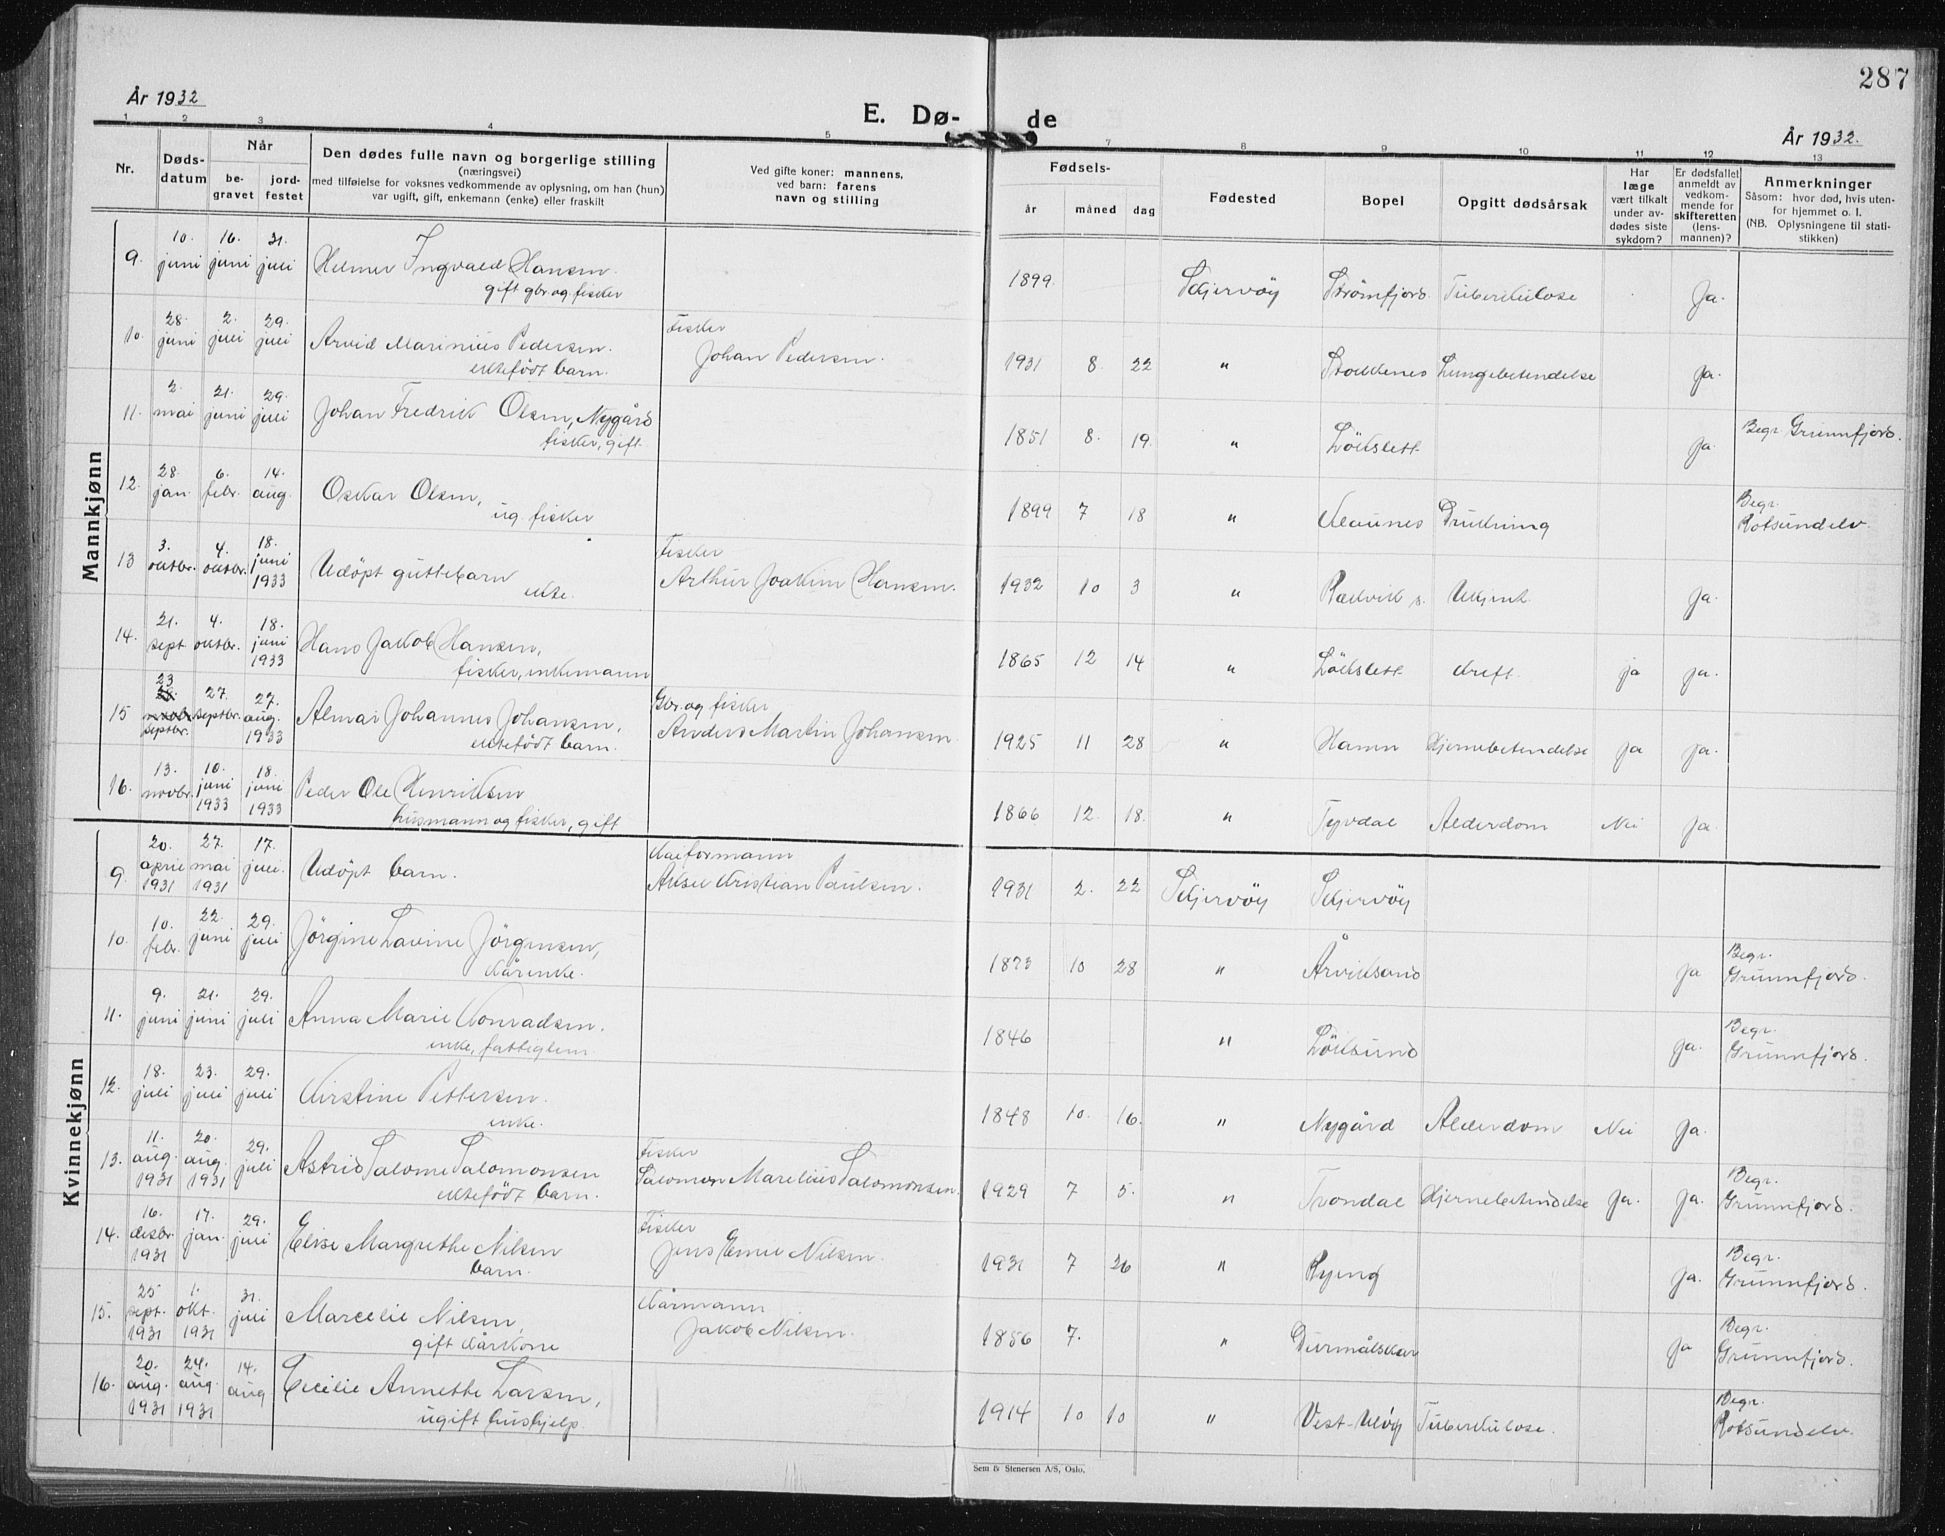 287
År 1932
E. Dø-
de
År 1932.
1 2 3 4 5 7 8 9 10 11 12 13
Nr.
Døds-
datum
Når
be-
gravet
jord-
festet
Den dødes fulle navn og borgerlige stilling
(næringsvei)
med tilføielse for voksnes vedkommende av oplysning, om han (hun)
var ugift, gift, enkemann (enke) eller fraskilt
Ved gifte koner: mannens,
ved barn: farens
navn og stilling
Fødsels-
år måned dag
Fødested
Bopel
Opgitt dødsårsak
Har
læge
vært tilkalt
under av-
dødes siste
sykdom?
Er dødsfallet
anmeldt av
vedkom-
mende for
skifteretten
(lens-
mannen)?
Anmerkninger
Såsom: hvor død, hvis uten-
for hjemmet o. l.
(NB. Oplysningene til stati-
stikken)
Mannkjønn
9. 10. juni 16. juni 31. juli Helmer Ingvald Hansen.
gift gbr. og fisker
1899. Skjervöy Strömfjord. Tuberkulose Ja.
10. 28. juni 2. juli 29. juli Arvid Marinius Pedersen.
ektefödt barn.
Fisker
Johan Pedersen.
1931 8. 22 " Stokkenes Lungebetendelse Ja.
11. 2. mai 21. juni 29. juli Johan Fredrik Olsen, Nygård
fisker, gift.
1851 8. 19. " Lökslett Ja. Begr. Grunnfjord.
12. 28. jan. 6. febr. 14. aug. Oskar Olsen,
ug. fisker
1899 7 18 " Klaunes Drukning Begr.
Rotsundelv.
13 3. oktbr. 4. oktbr. 18. juni 1933 Udöpt guttebarn
ekte.
Fisker
Arthur Joakim Hansen.
1932 10 3 " Rakvik s. Ukjent. Ja.
14. 21. sept 4. oktbr. 18. juni 1933 Hans Jakob Hansen,
fisker, enkemann
1865 12 14 " Lökslett kreft. ja ja.
15 23 septbr. 27. septbr. 27. aug. 1933 Almar Johannes Johansen,
ektefödt barn.
Gbr. og fisker
Anders Martin Johansen
1925 11 28 " Hamn Hjernebetendelse ja ja.
16. 13. novbr. 10. juni 1933 18. juni 1933 Peder Ole Henriksen
husmann og fisker, gift
1866 12. 18. " Tyvdal Alderdom Nei Ja.
Kvinnekjønn
9. 20. april 1931 27. mai 1931 17. juli. Udöpt barn.
Kaiformann
Aksel Kristian Paulsen.
1931 2. 22 Skjervöy Skjervöy
10. 10. febr. 22. juni 29. juli Jörgine Lavine Jörgensen,
kårenke.
1873 10 28 " Årviksand Ja Begr.
Grunnfjord.
11. 9. juni 21. juni 29. juli Anna Marie Konradsen.
enke, fattiglem.
1846 " Löksund Ja. Begr.
Grunnfjord.
12. 18. juli 23. juli 29. juli Kirstine Pettersen.
enke.
1848 10. 16. " Nygård Alderdom Nei Ja.
13. 11. aug. 1931 20. aug. 1931 29. juli Astrid Salome Salomonsen
ektefödt barn.
Fisker
Salomon Marelius Salomonsen.
1929 7 5. " Trondal Hjernebetendelse Ja. Ja. Begr.
Grunnfjord.
14. 16. desbr. 1931 17. jan. 29. juli Elise Margrethe Nilsen
barn.
Fisker
Jens Emil Nilsen.
1931 7 26 " Rying Ja. Begr.
Grunnfjord.
15. 25 sept. 1931 1. okt. 1931 31. juli Marcelie Nilsen,
gift kårkone
Kårmann
Jakob Nilsen.
1856 7. " Durmålskar Ja Begr.
Grunnfjord.
16. 20. aug. 1931 24. aug. 1931 14. aug Cecilie Annette Larsen,
ugift hushjelp.
1914 10 10 " Vest-Ulöy Tuberkulose. Begr.
Rotsundelv.
Sem & Stenersen A/S, Oslo.